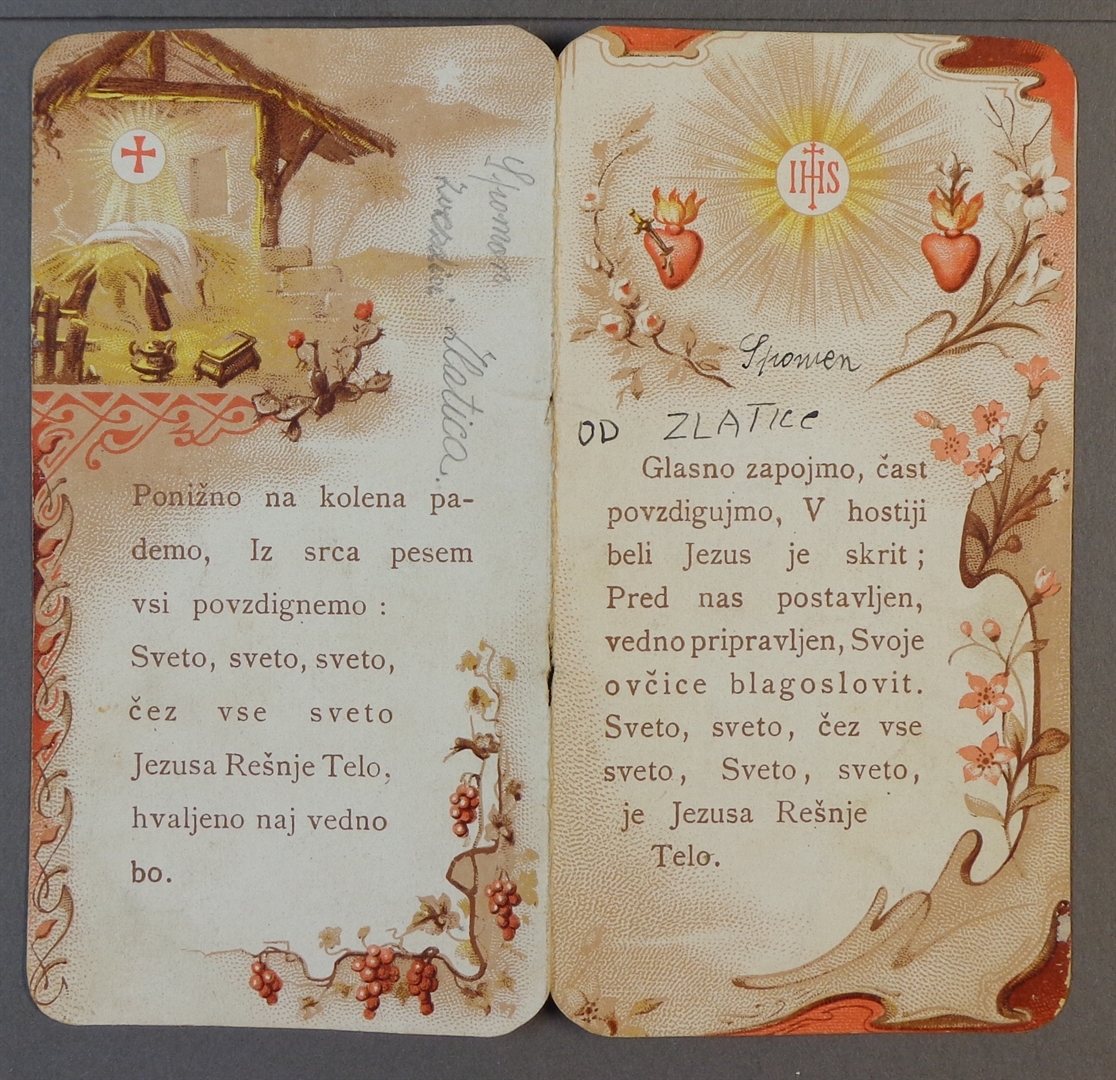 Spomen
Zlatica.
Ponižno na kolena pa-
demo, Iz srca pesem
vsi povzdignemo :
Sveto, sveto, sveto,
čez vse sveto
Jezusa Rešnje Telo,
hvaljeno naj vedno
bo.
IHS
Spomen
OD ZLATICE
Glasno zapojmo, čast
povzdigujmo, V hostiji
beli Jezus je skrit ;
Pred nas postavljen,
vedno pripravljen, Svoje
ovčice blagoslovit.
Sveto, sveto, čez vse
sveto, Sveto, sveto,
je Jezusa Rešnje
Telo.